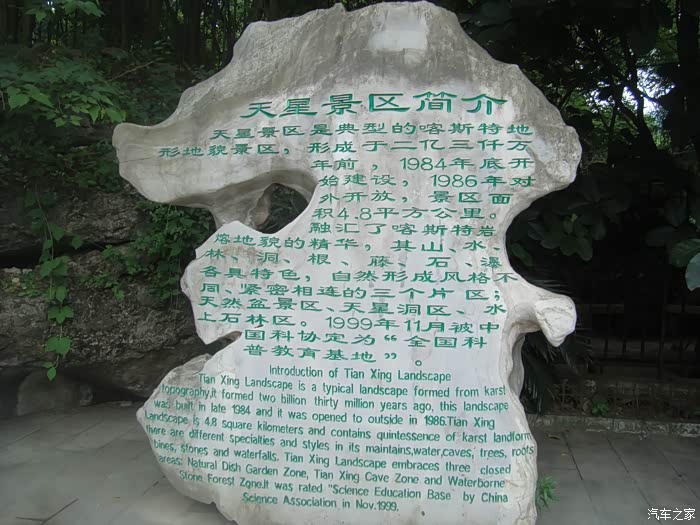 天星景区简介
天星景区是典型的喀斯特地
形地貌景区，形成于二亿三仟万
年前，1984年底开
始建设，1986年对
外开放，景区面
积4.8平方公里。
融汇了喀斯特岩
熔地貌的精华，其山、水、
林、洞、根、藤、石、瀑
各具特色，自然形成风格不
同、紧密相连的三个片区；
天然盆景区、天星洞区、水
上石林区。1999年11月被中
国科协定为“全国科
普教育基地”。
Introduction of Tian Xing Landscape
Tian Xing Landscape is a typical landscape formed from karst
topography,it formed two billion thirty million years ago, this landscape
was built in late 1984 and it was opened to outside in 1986.Tian Xing
Landscape is 4.8 square kilometers and contains quintessence of karst landform
there are different specialties and styles in its maintains,water,caves, trees, roots
bines, stones and waterfalls. Tian Xing Landscape embraces three closed
areas: Natural Dish Garden Zone, Tian Xing Cave Zone and Waterborne
Stone Forest Zone.It was rated "Science Education Base" by China
Science Association in Nov.1999.
汽车之家